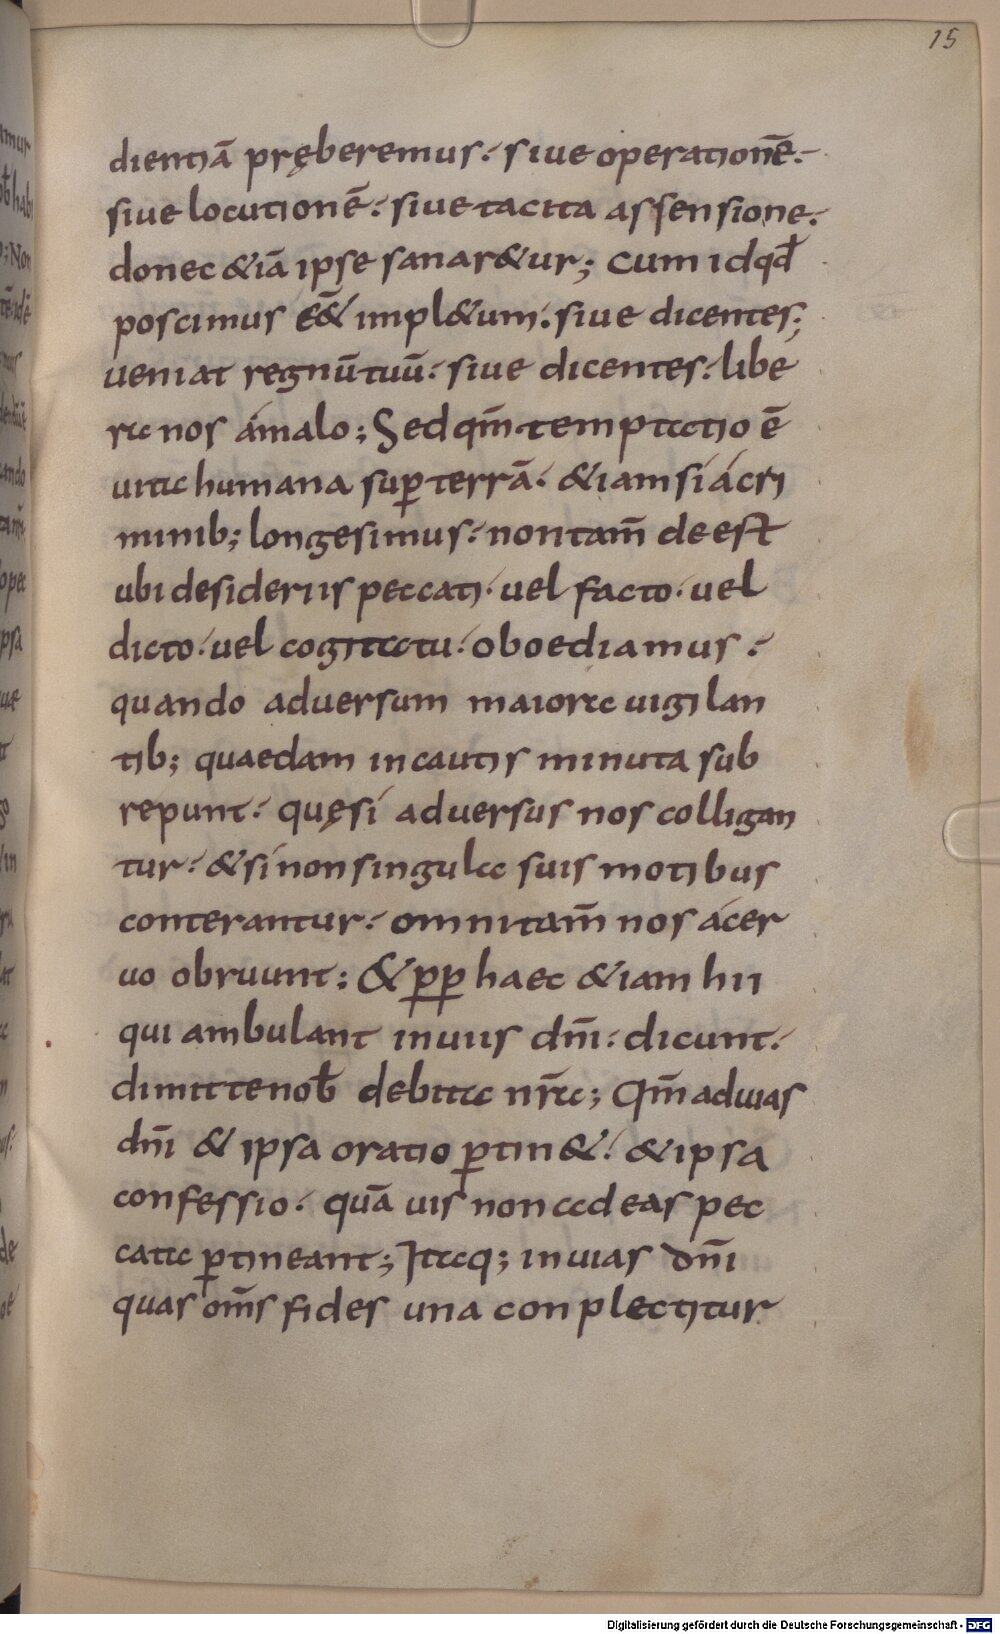 15
dientiā pręberemus: siue operationē:
siue locutionē: siue tacita assensione:
donec &iā ipse sanar&ur; cum idqđ
poscimus ē& impl&um: siue dicentes;
ueniat regnū tuū: siue dicentes: libe
ra nos ámalo; Sed qm̄ temptatio ē
uita humana sup̲ terrā: &iam sí ácri
minib; longe simus: non tam̄ deest
ubi desideriis peccati· uel facto· uel
dicto· uel cogitatu· oboediamus:
quando aduersum maiora uigilan
tib; quaedam incautis minuta sub
repunt: quę sí aduersus nos colligan
tur: & sí non singula suis motibus
conterantur: omni tam̄ nos ácer
uo obruunt; & p̲p̲ haec &iam hii
qui ambulant in uiis dn̄i: dicunt:
dimitte noƀ debita nr̄a; Qm̄ ad uias
dn̄i & ipsa oratio p̲tin&: & ipsa
confessio: quā uis non ad eas pec
cata p̲tineant; Itaq; in uias dn̄i
quas om̄s fides una conplectitur
Digitalisierung gefördert durch die Deutsche Forschungsgemeinschaft - DFG